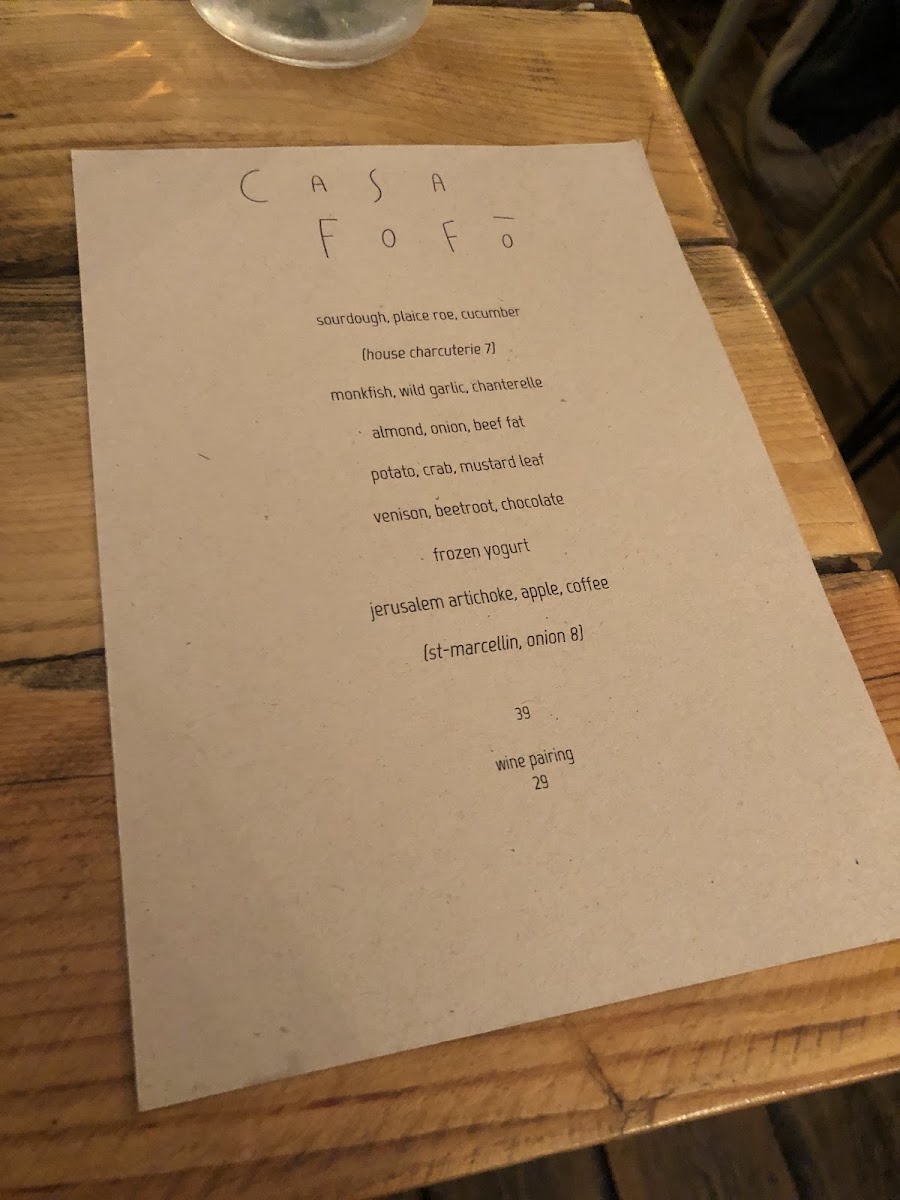 CASA
FOFŌ
sourdough, plaice roe, cucumber
(house charcuterie 7)
monkfish, wild garlic, chanterelle
almond, onion, beef fat
potato, crab, mustard leaf
venison, beetroot, chocolate
frozen yogurt
jerusalem artichoke, apple, coffee
(st-marcellin, onion 8)
39
wine pairing
29